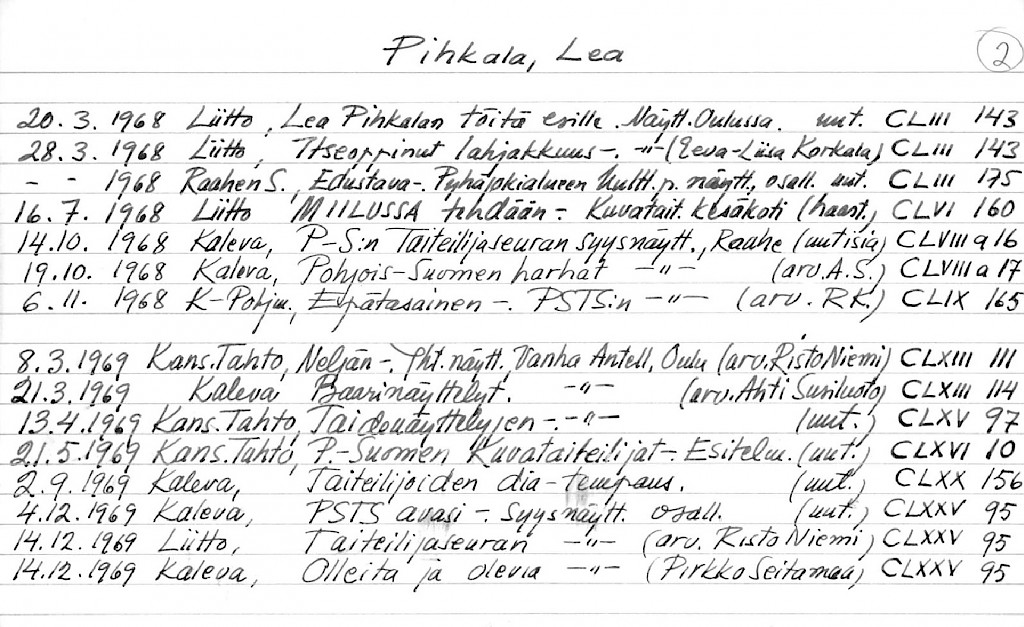 Pihkala, Lea 2
20.3.1968 Liitto, Lea Pihkalan töitä esille. Näytt. Oulussa. uut. CLIII 143
28.3.1968 Liitto, Itseoppinut lahjakkuus-. -"- (Eeva-Liisa Korkala) CLIII 143
- - 1968 Raahen S., Edustava-. Pyhäjokialueen Kultt.p. näytt., osall. uut. CLIII 175
16.7.1968 Liitto MIILUSSA tehdään- Kuvatait. kesäkoti (haast.) CLVI 160
14.10.1968 Kaleva, P-S:n Taiteilijaseuran syysnäytt., Raahe (uutisia) CLVIII a 16
19.10.1968 Kaleva, Pohjois-Suomen harhat -"- (arv. A.S.) CLVIII a 17
6.11.1968 K-Pohjm., Epätasainen -. PSTS:n -"- (arv. R.K.) CLIX 165
8.3.1969 Kans.Tahto, Neljän-. Yht. näytt. Vanha Antell, Oulu (arv. Risto Niemi) CLXIII 111
21.3.1969 Kaleva Baarinäyttelyt. -"- (arv. Ahti Susiluoto) CLXIII 114
13.4.1969 Kans.Tahto, Taidenäyttelyjen-. -"- (uut.) CLXV 97
21.5.1969 Kans.Tahto, P.-Suomen Kuvataiteilijat-. Esitelm. (uut.) CLXVI 10
2.9.1969 Kaleva, Taiteilijoiden dia-tempaus. (uut.) CLXX 156
4.12.1969 Kaleva, PSTS avasi -. syysnäytt. osall. (uut.) CLXXV 95
14.12.1969 Liitto, Taiteilijaseuran -"- (arv. Risto Niemi) CLXXV 95
14.12.1969 Kaleva, Olleita ja olevia -"- (Pirkko Seitamaa) CLXXV 95